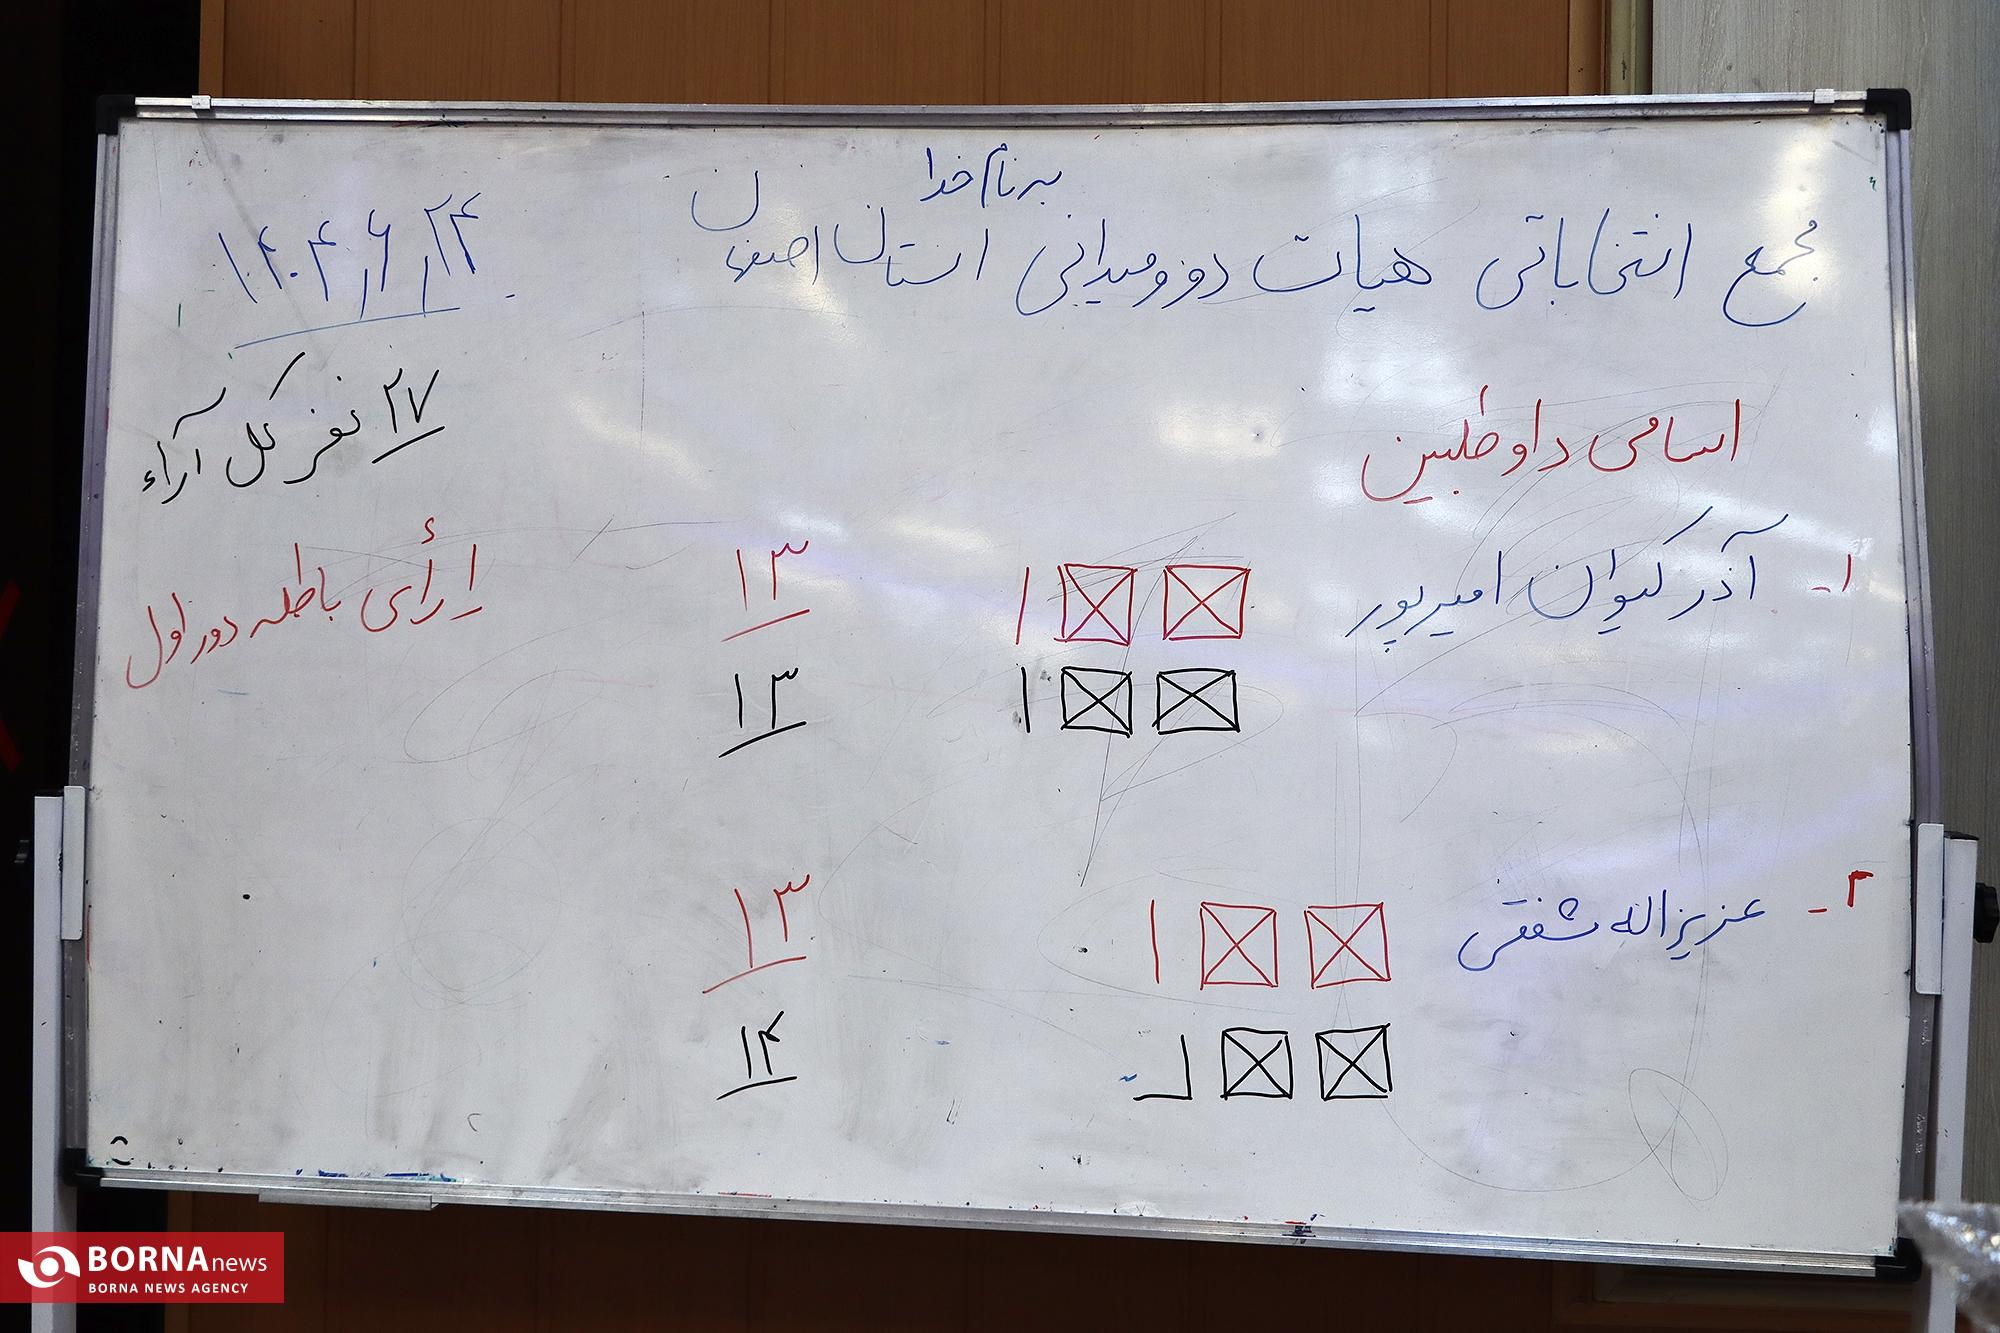 به نام خدا
مجمع انتخاباتی هیات دو و میدانی استان اصفهان
۱۴۰۴/۶/۲۴
۲۷ نفر کل آراء
اسامی داوطلبین
۱- آذر کیوان امیرپور
۱۳
۱ رأی باطله دور اول
۱۳
۲- عزیزاله شفقی
۱۳
۱۴
BORNA news
BORNA NEWS AGENCY